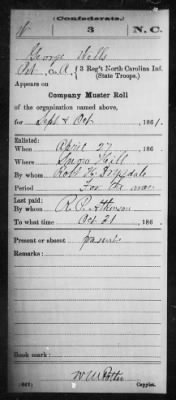 (Confederate.)
W 3 N.C.
George Wells
Pvt Co. A, 3 Reg't North Carolina Inf.
(State Troops.)
Appears on
Company Muster Roll
of the organization named above,
for Sept & Oct, 1861.
Enlisted:
When April 27, 186
Where Snow Hill
By whom Robt H. Drysdale
Period For the war
Last paid:
By whom R. P. Atkinson
To what time Oct 21, 186
Present or absent present
Remarks:
Book mark:
(642) Copyist.